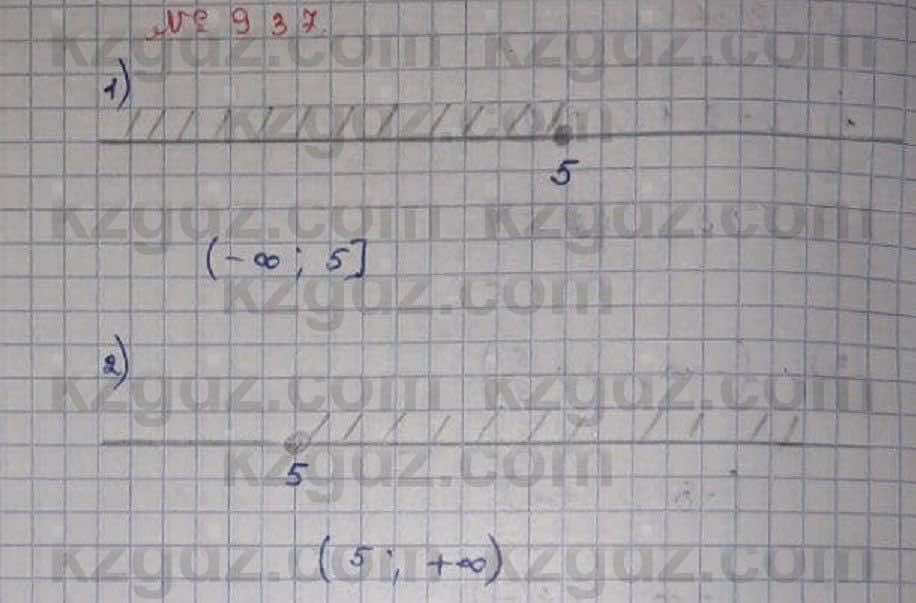 № 937.
kzgdz.com kzgdz.com
1)
kzgdz.com
5
kzgdz.com kzgdz.com
(-∞; 5]
kzgdz.com
2)
kzgdz.com kzgdz.com
kzgdz.com
5
(5; +∞)
kzgdz.com kzgdz.com